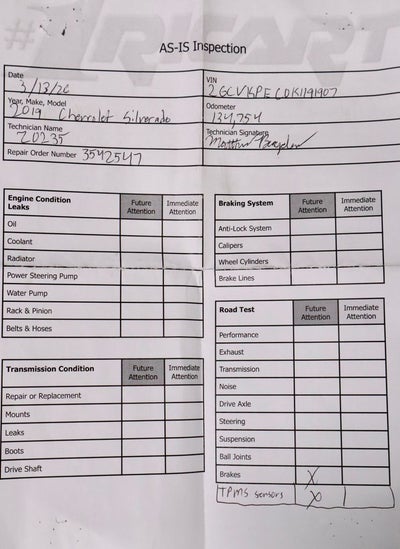 #1 RICART
AS-IS Inspection
Date
3/13/26
VIN
2GCVKPEC0K1191907
Year, Make, Model
2019 Chevrolet Silverado
Odometer
134,754
Technician Name
20235
Technician Signature
Repair Order Number 3542547
Engine Condition
Leaks
Future Attention
Immediate Attention
Oil
Coolant
Radiator
Power Steering Pump
Water Pump
Rack & Pinion
Belts & Hoses
Transmission Condition
Future Attention
Immediate Attention
Repair or Replacement
Mounts
Leaks
Boots
Drive Shaft
Braking System
Future Attention
Immediate Attention
Anti-Lock System
Calipers
Wheel Cylinders
Brake Lines
Road Test
Future Attention
Immediate Attention
Performance
Exhaust
Transmission
Noise
Drive Axle
Steering
Suspension
Ball Joints
Brakes X
TPMS sensors X